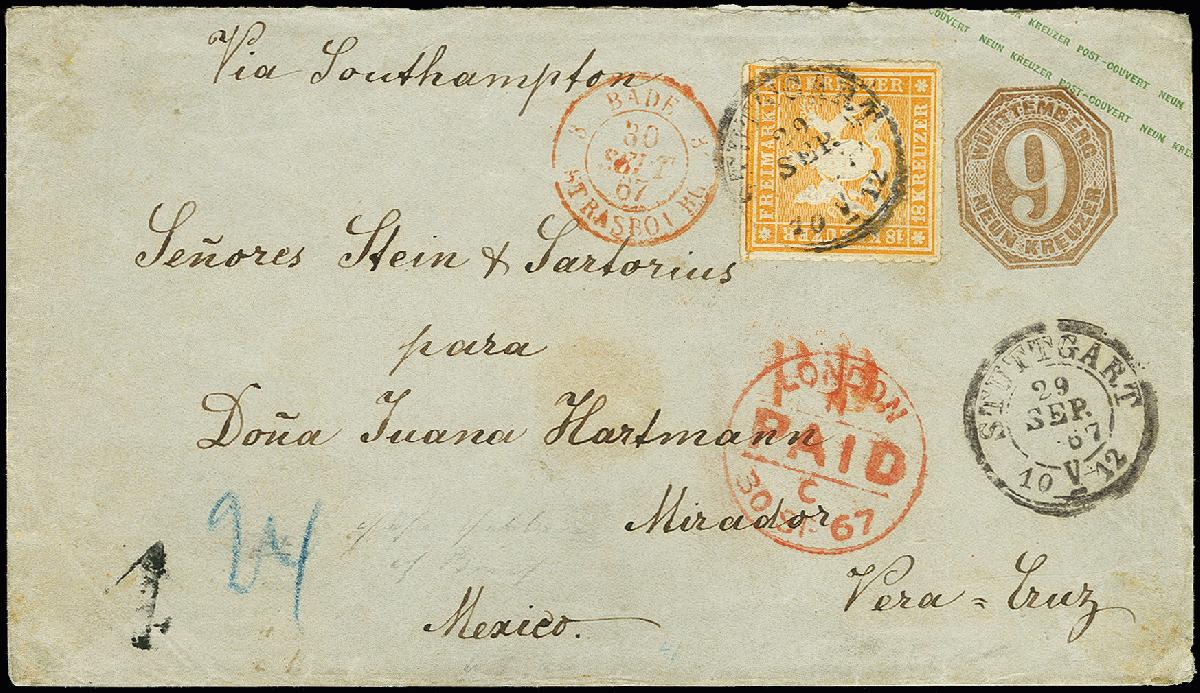 Via Southampton
NEUN KREUZER POST-COUVERT NEUN
COUVERT NEUN KREUZER POST-COUVERT NEUN KRE
3 BADE 3
30
SEPT
67
STRASBOURG
FREIMARKE
KREUZER
18 KREUZER
18 KREUZER
STUTTGART
29
SEP.
67
10 V 12
WÜRTTEMBERG
9
NEUN KREUZER
Señores Stein & Sartorius
para
Doña Juana Hartmann
Mirador
Vera = Cruz
Mexico.
LONDON
PAID
C
30 SP 67
STUTTGART
29
SEP.
67
10 V 12
24
1